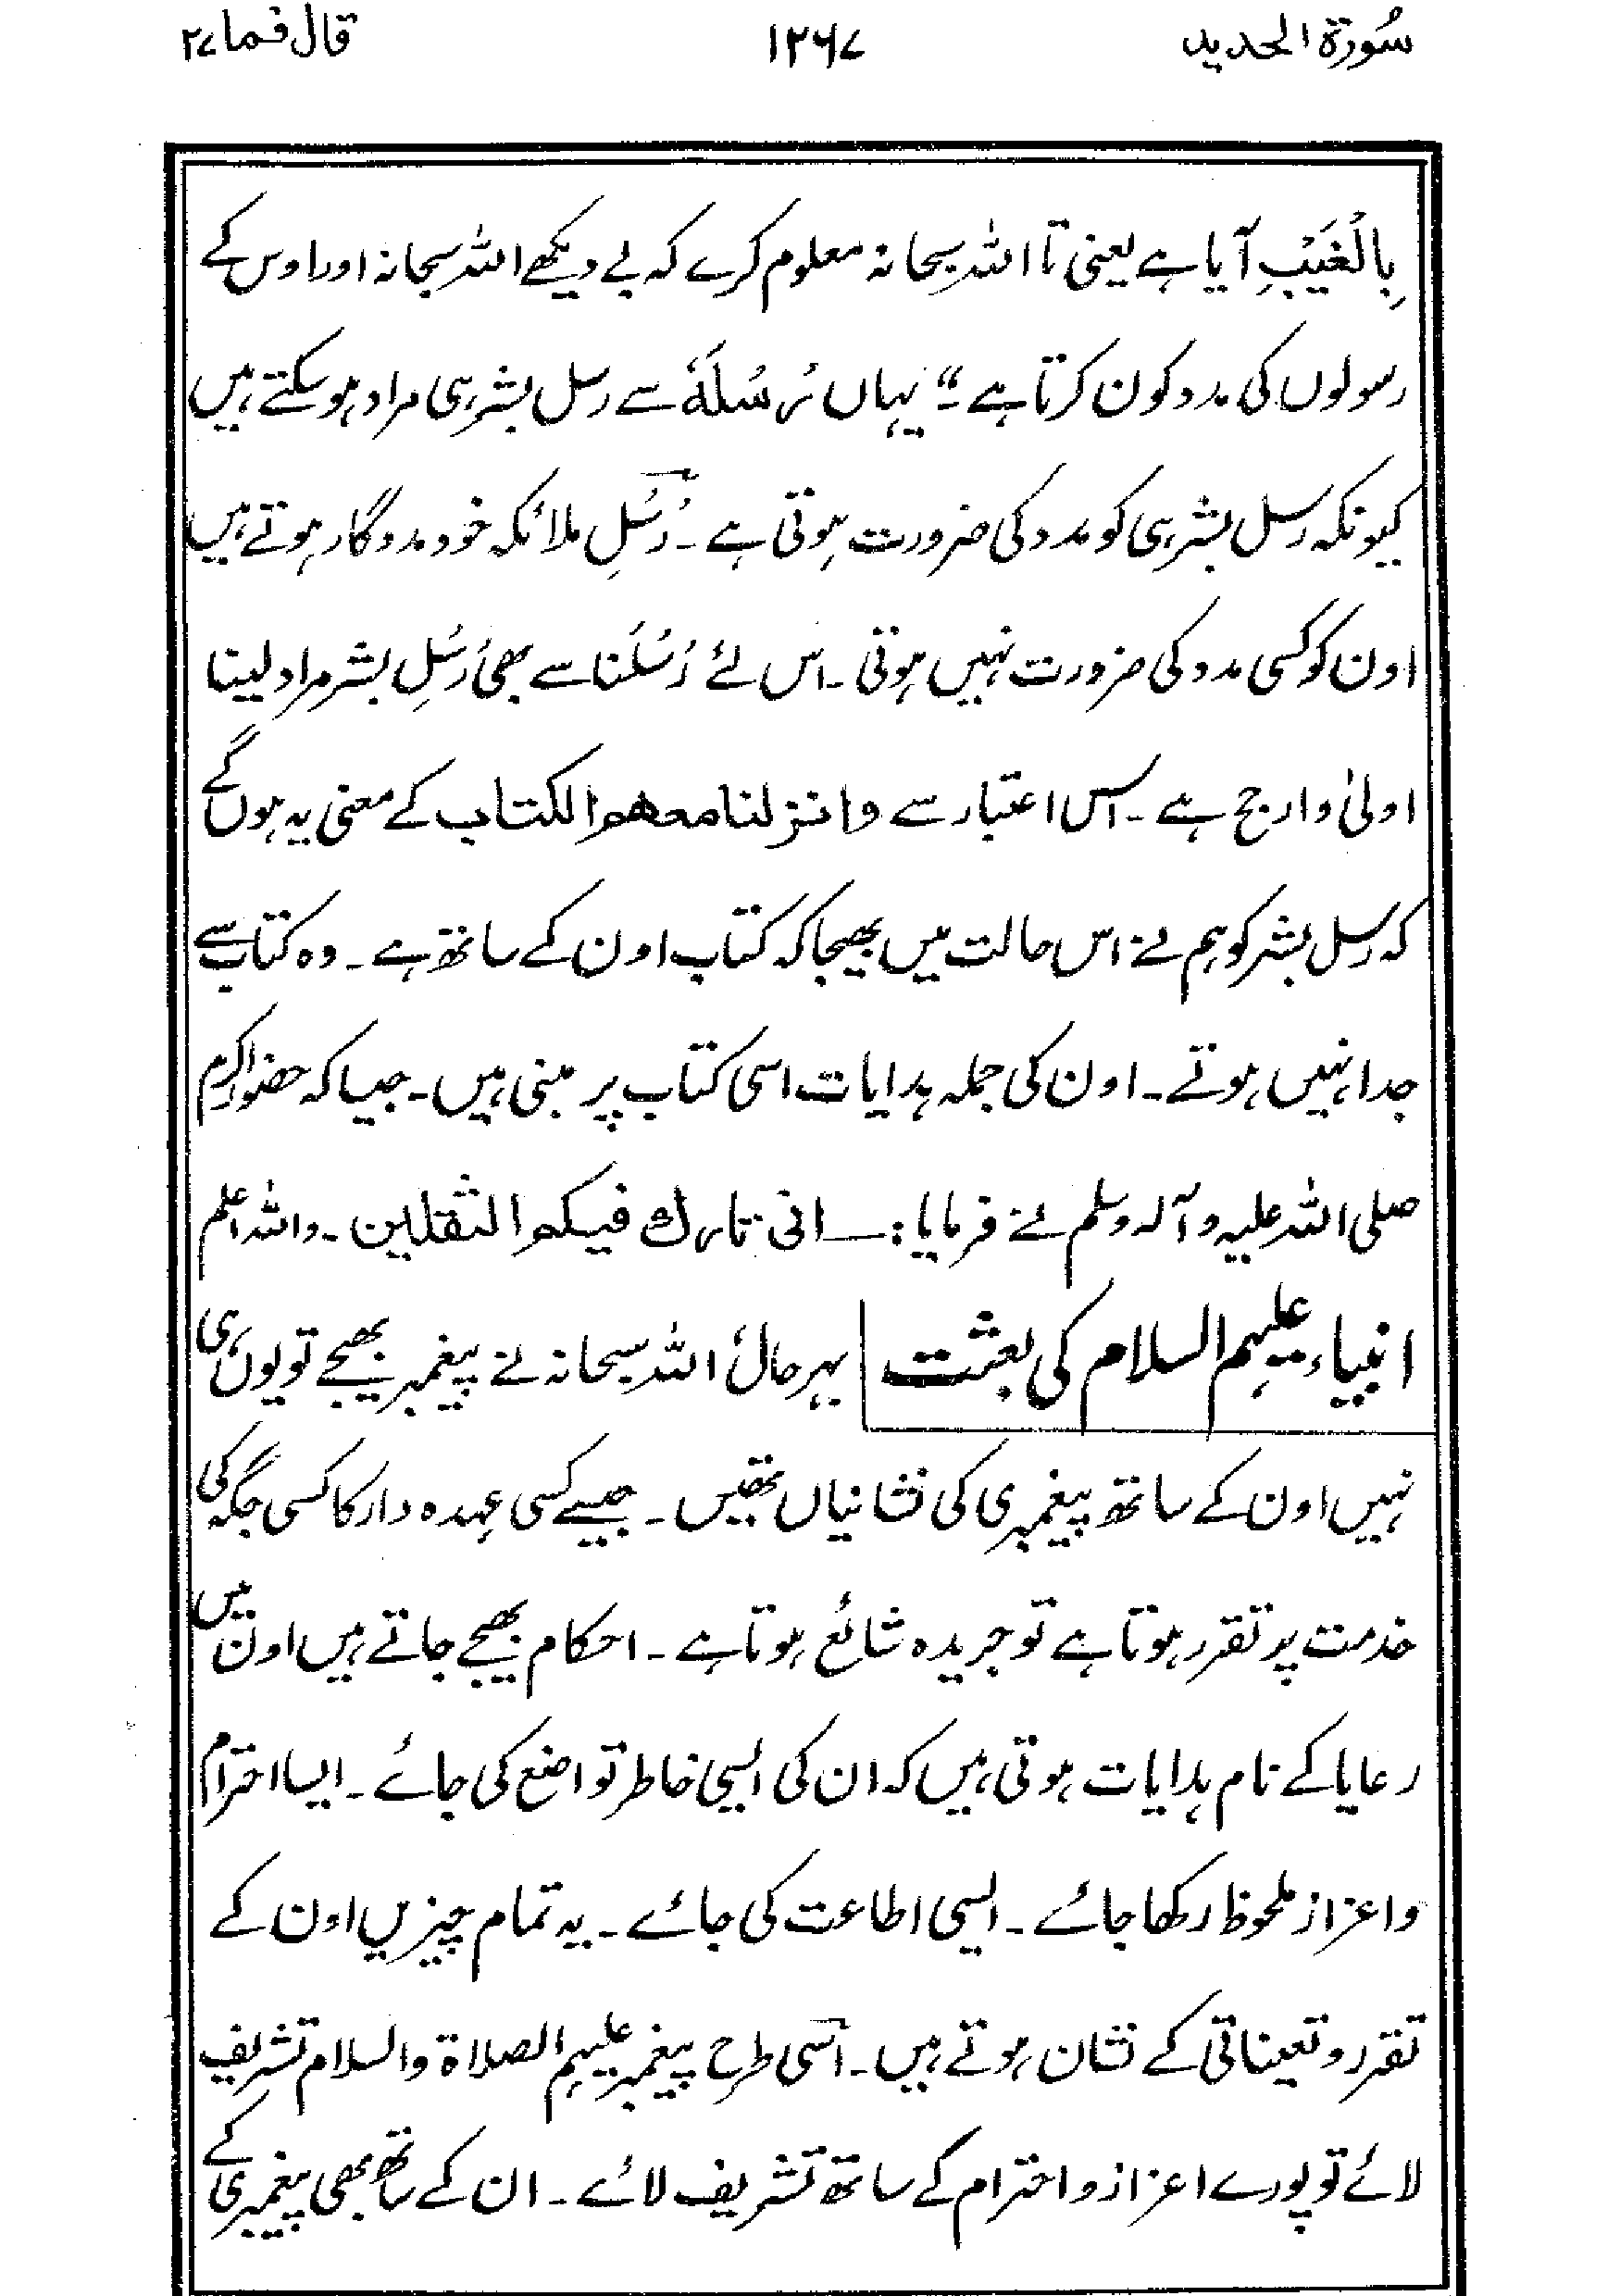 سُورة الحديد ۱۲۶۷ قال فما ۲۷
بِالْغَيْبِ آیا ہے یعنی تا اللہ سبحانہ معلوم کرے کہ بے دیکھے اللہ سبحانہ اور اوس کے
رسولوں کی مدد کون کرتا ہے "۔ یہاں رُسُلَهٗ سے رسل بشر ہی مراد ہو سکتے ہیں
کیونکہ رسل بشر ہی کو مدد کی ضرورت ہوتی ہے ۔ رُسُلِ ملائکہ خود مددگار ہوتے ہیں
اون کو کسی مدد کی ضرورت نہیں ہوتی ۔ اس لئے رُسُلَنا سے بھی رُسُلِ بشر مراد لینا
اولیٰ وارجح ہے ۔ اس اعتبار سے وانزلنا معهم الكتاب کے معنی یہ ہوں گے
کہ رسل بشر کو ہم نے اس حالت میں بھیجا کہ کتاب اون کے ساتھ ہے ۔ وہ کتاب سے
جدا نہیں ہوتے ۔ اون کی جملہ ہدایات اسی کتاب پر مبنی ہیں ۔ جیسا کہ حضور اکرم
صلی اللہ علیہ وآلہ وسلم نے فرمایا :۔ انی تارك فیكم الثقلین ۔ واللہ اعلم
انبیاء علیہم السلام کی بعثت بہر حال اللہ سبحانہ نے پیغمبر بھیجے تو یوں ہی
نہیں اون کے ساتھ پیغمبری کی نشانیاں تھیں ۔ جیسے کسی عہدہ دار کا کسی جگہ کی
خدمت پر تقرر ہوتا ہے تو جریدہ شائع ہوتا ہے ۔ احکام بھیجے جاتے ہیں اون میں
رعایا کے نام ہدایات ہوتی ہیں کہ ان کی ایسی خاطر تواضع کی جائے ۔ ایسا احترام
واعزاز ملحوظ رکھا جائے ۔ ایسی اطاعت کی جائے ۔ یہ تمام چیزیں اون کے
تقرر و تعیناتی کے نشان ہوتے ہیں ۔ اسی طرح پیغمبر علیہم الصلاۃ والسلام تشریف
لائے تو پورے اعزاز و احترام کے ساتھ تشریف لائے ۔ ان کے ساتھ بھی پیغمبری کے